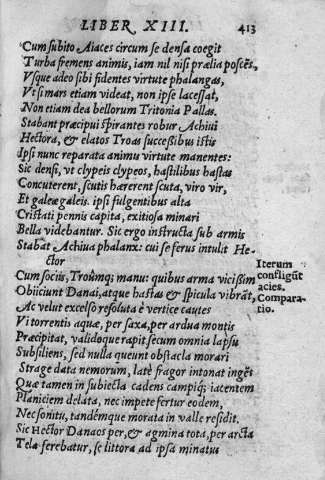 LIBER XIII. 413
Cum subito Aiaces circum se densa coegit
Turba fremens animis, iam nil nisi prælia poscẽs,
Vsque adeo sibi fidentes virtute phalangas,
Vt si mars etiam videat, non ipse lacessat,
Non etiam dea bellorum Tritonia Pallas.
Stabant præcipui spirantes robur Achiui
Hectora, & elatos Troas successibus istis
Ipsi nunc reparata animu virtute manentes:
Sic densi, vt clypeis clypeos, hastilibus hastas
Concuterent, scutis hærerent scuta, viro vir,
Et galeæ galeis. ipsi fulgentibus alta
Cristati pennis capita, exitiosa minari
Bella videbantur. Sic ergo instructa sub armis
Stabat Achiua phalanx: cui se ferus intulit He-
ctor
Cum socijs, Troûmq; manu: quibus arma vicißim
Obijciunt Danai, atque hastas & spicula vibrãt,
Ac velut excelso resoluta è vertice cautes
Vi torrentis aquæ, per saxa, per ardua montis
Præcipitat, validoque rapit secum omnia lapsu
Subsiliens, sed nulla queunt obstacla morari
Strage data nemorum, latè fragor intonat ingẽs
Quæ tamen in subiecta cadens campiq; iacentem
Planiciem delata, nec impete fertur eodem,
Nec sonitu, tandémque morata in valle residit.
Sic Hector Danaos per, & agmina tota, per arcta
Tela ferebatur, se littora ad ipsa minatus
Iterum
confligũt
acies.
Compara-
tio.